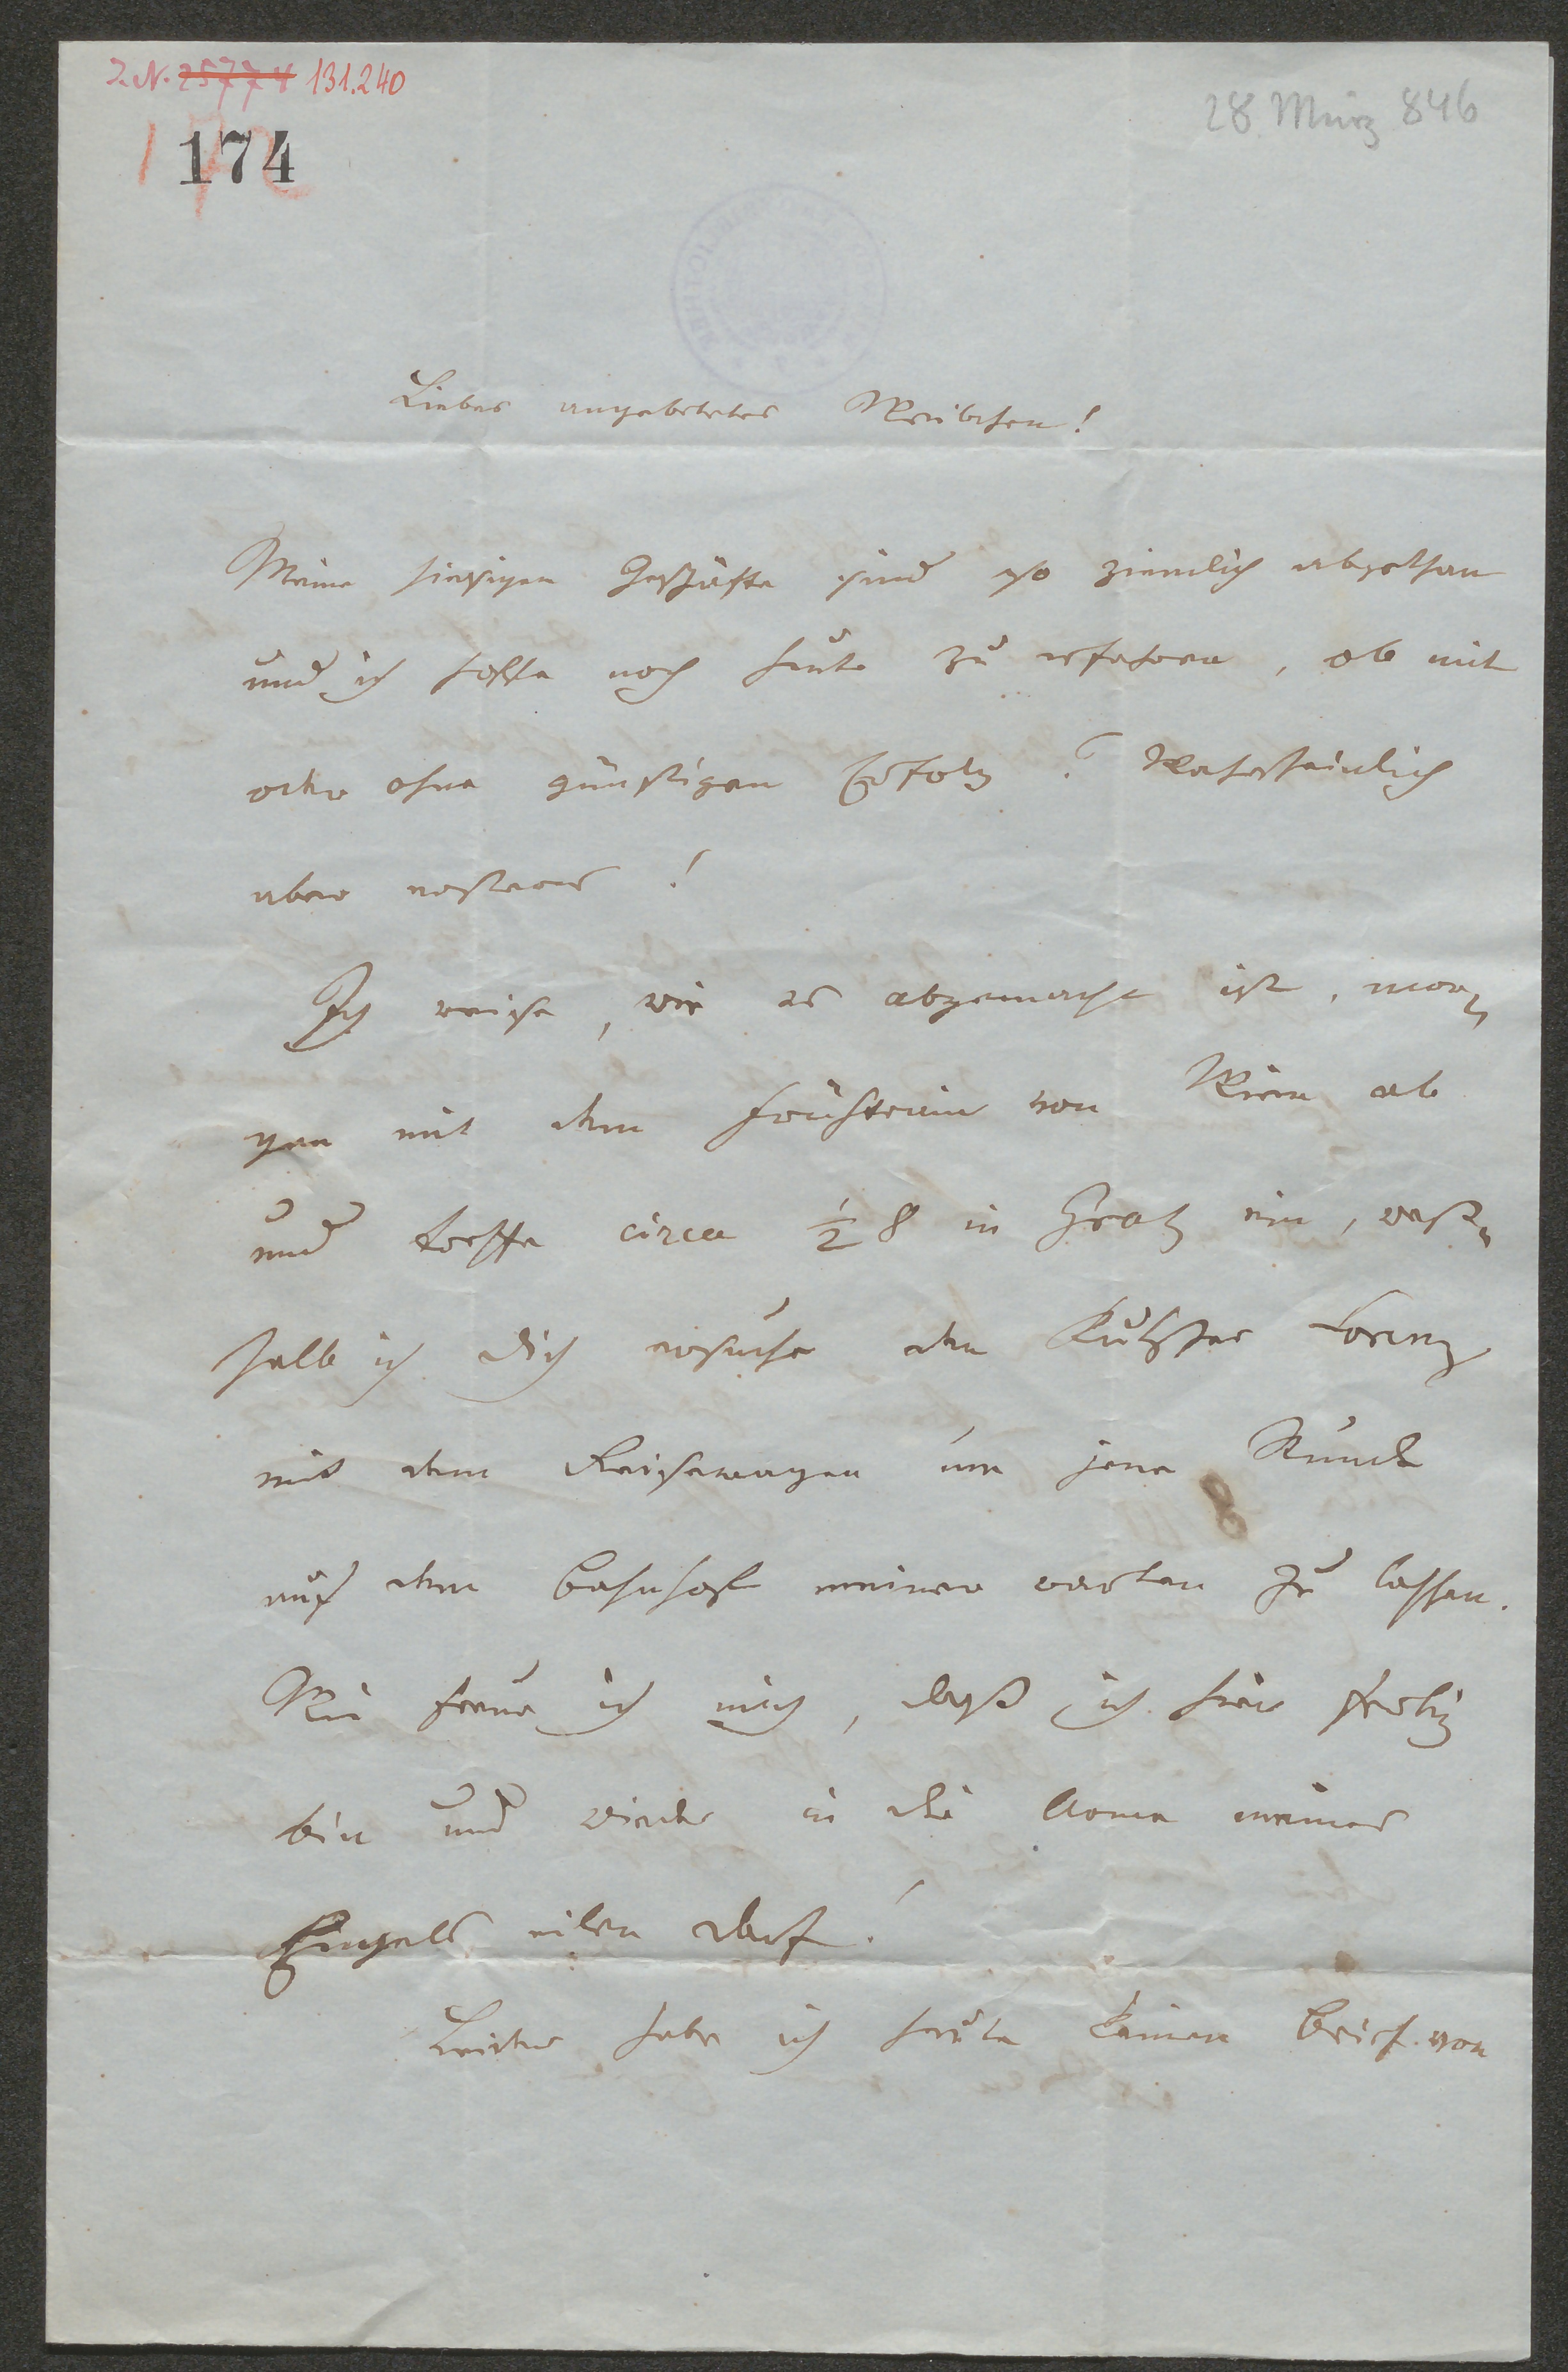 I. N. 25774 131.240
174
28. März 846
Liebes angebetetes Weibchen!
Meine hiesigen Geschäfte sind so ziemlich abgethan
und ich hoffe noch heute zu erfahren, ob mit
oder ohne günstigen Erfolg? Wahrscheinlich
aber ersteres!
Ich reise, wie es abgemacht ist, mor-
gen mit dem Frühtrain von Wien ab
und treffe circa ½ 8 in Gratz ein, weß-
halb ich Dich ersuche den Kutscher Lorenz
mit dem Reisewagen um jene Stunde
auf dem Bahnhofe meiner warten zu lassen.
Wie freue ich mich, daß ich hier fertig
bin und wieder in die Arme meines
Engels eilen darf!
Leider habe ich heute keinen Brief von